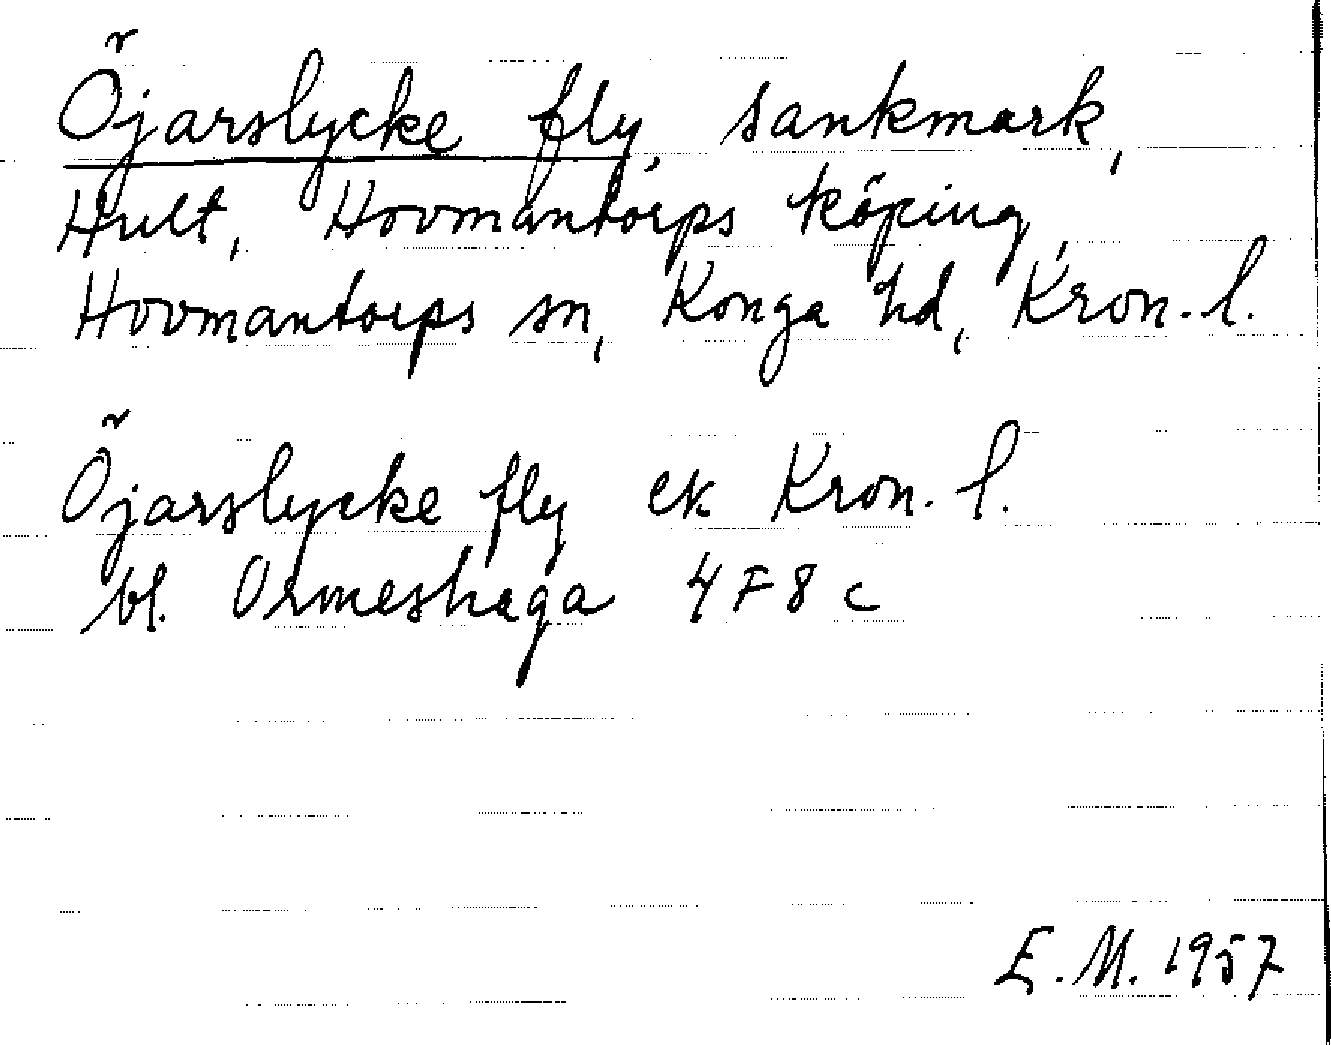 Öjarslycke fly, sankmark,
Hult, Hovmantorps köping,
Hovmantorps sn, Konga hd, Kron. l.
Öjarslycke fly ek Kron. l.
bl. Ormeshaga 4F8c
E.M. 1957